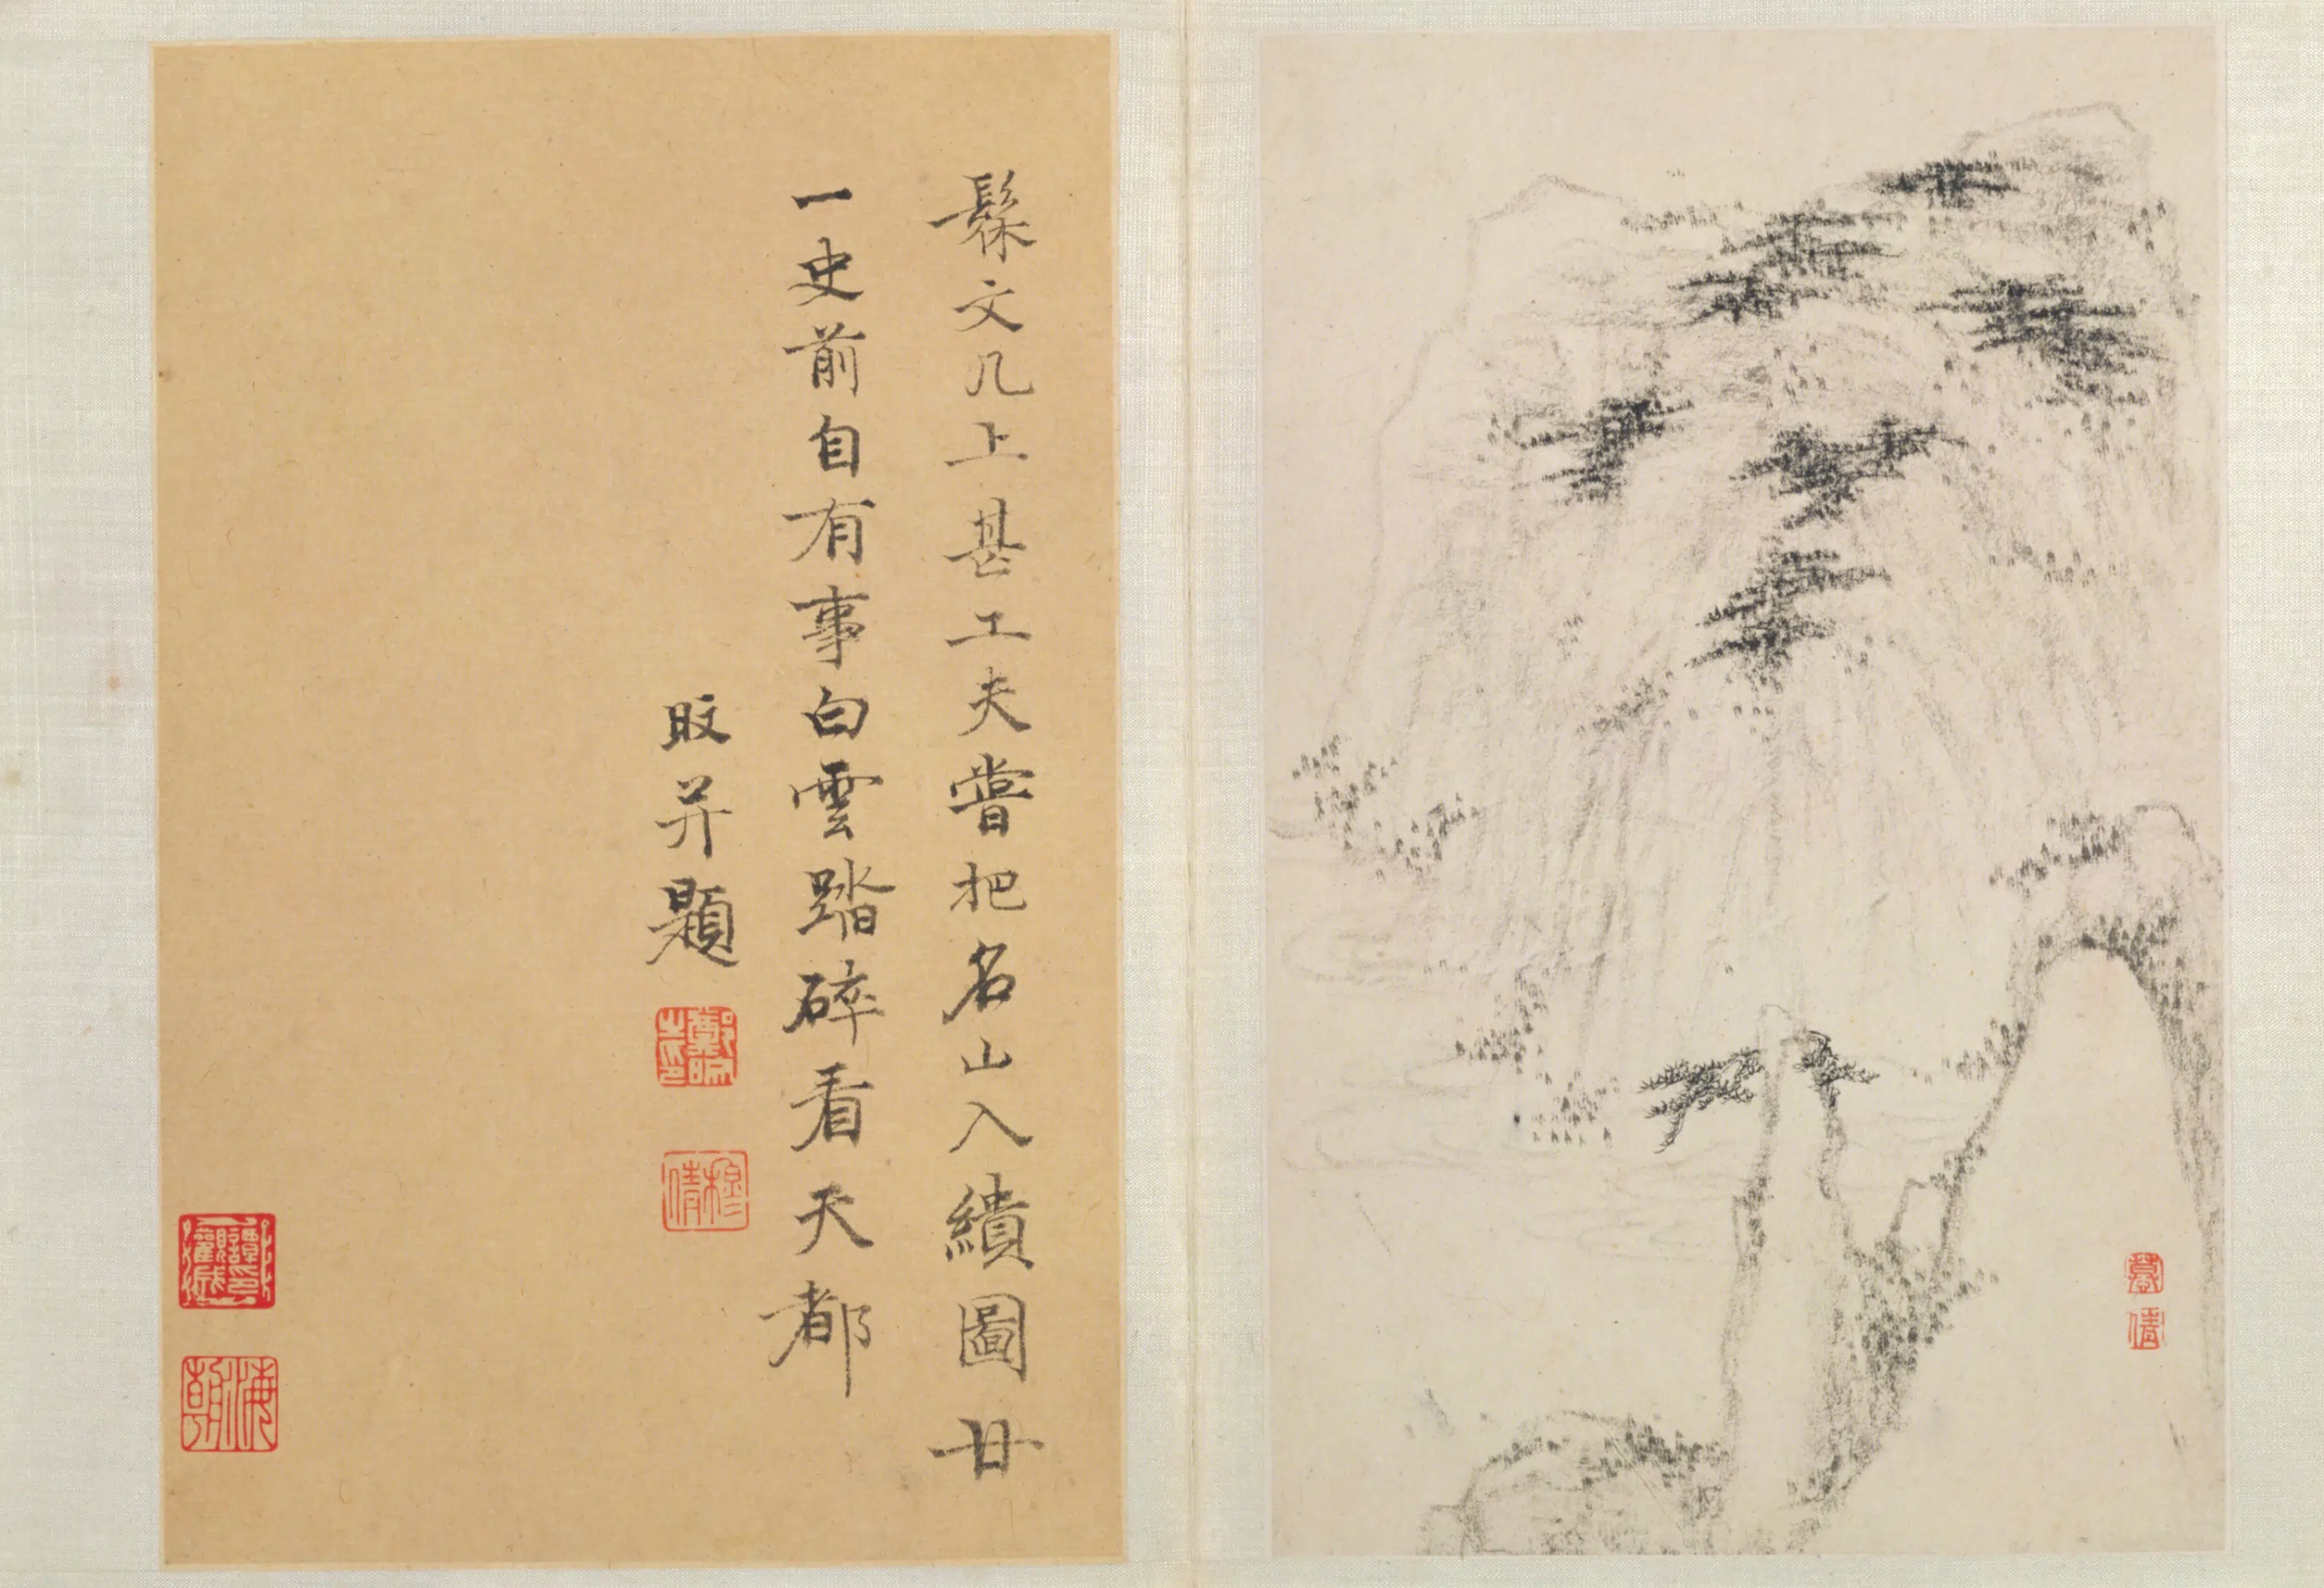 慕
倩
髹文几上甚工夫嘗把名山入繢圖廿
一史前自有事白雲踏碎看天都
旼并題
穆倩